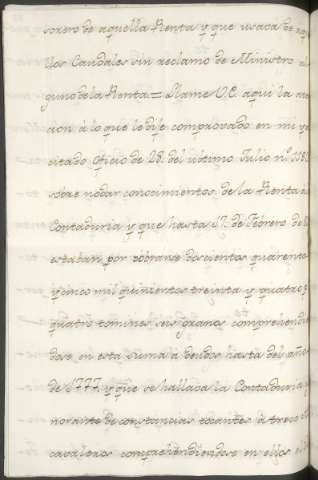 sorero de aquella Renta y que usava de aq
llos Caudales sin reclamo de Ministro al
guno de la Renta = Llame V.E. aqui la ate
cion á lo que le dije comprovado en mi ya
citado Oficio de 28. del ultimo Julio nº
sobre no dar conocimientos de la Renta á
Contaduria y que hasta 17. de Febrero de
estaban por cobranse doscientos quarenta
y cinco mil quinientos treinta y quatro p
quatro tomines seis granos comprehendi
dose en esta suma á deudos hasta del año
de 1777. y que se hallava la Contaduria
norante de constancias tocantes á trece
cavaleros comprehendiendose en ellos el